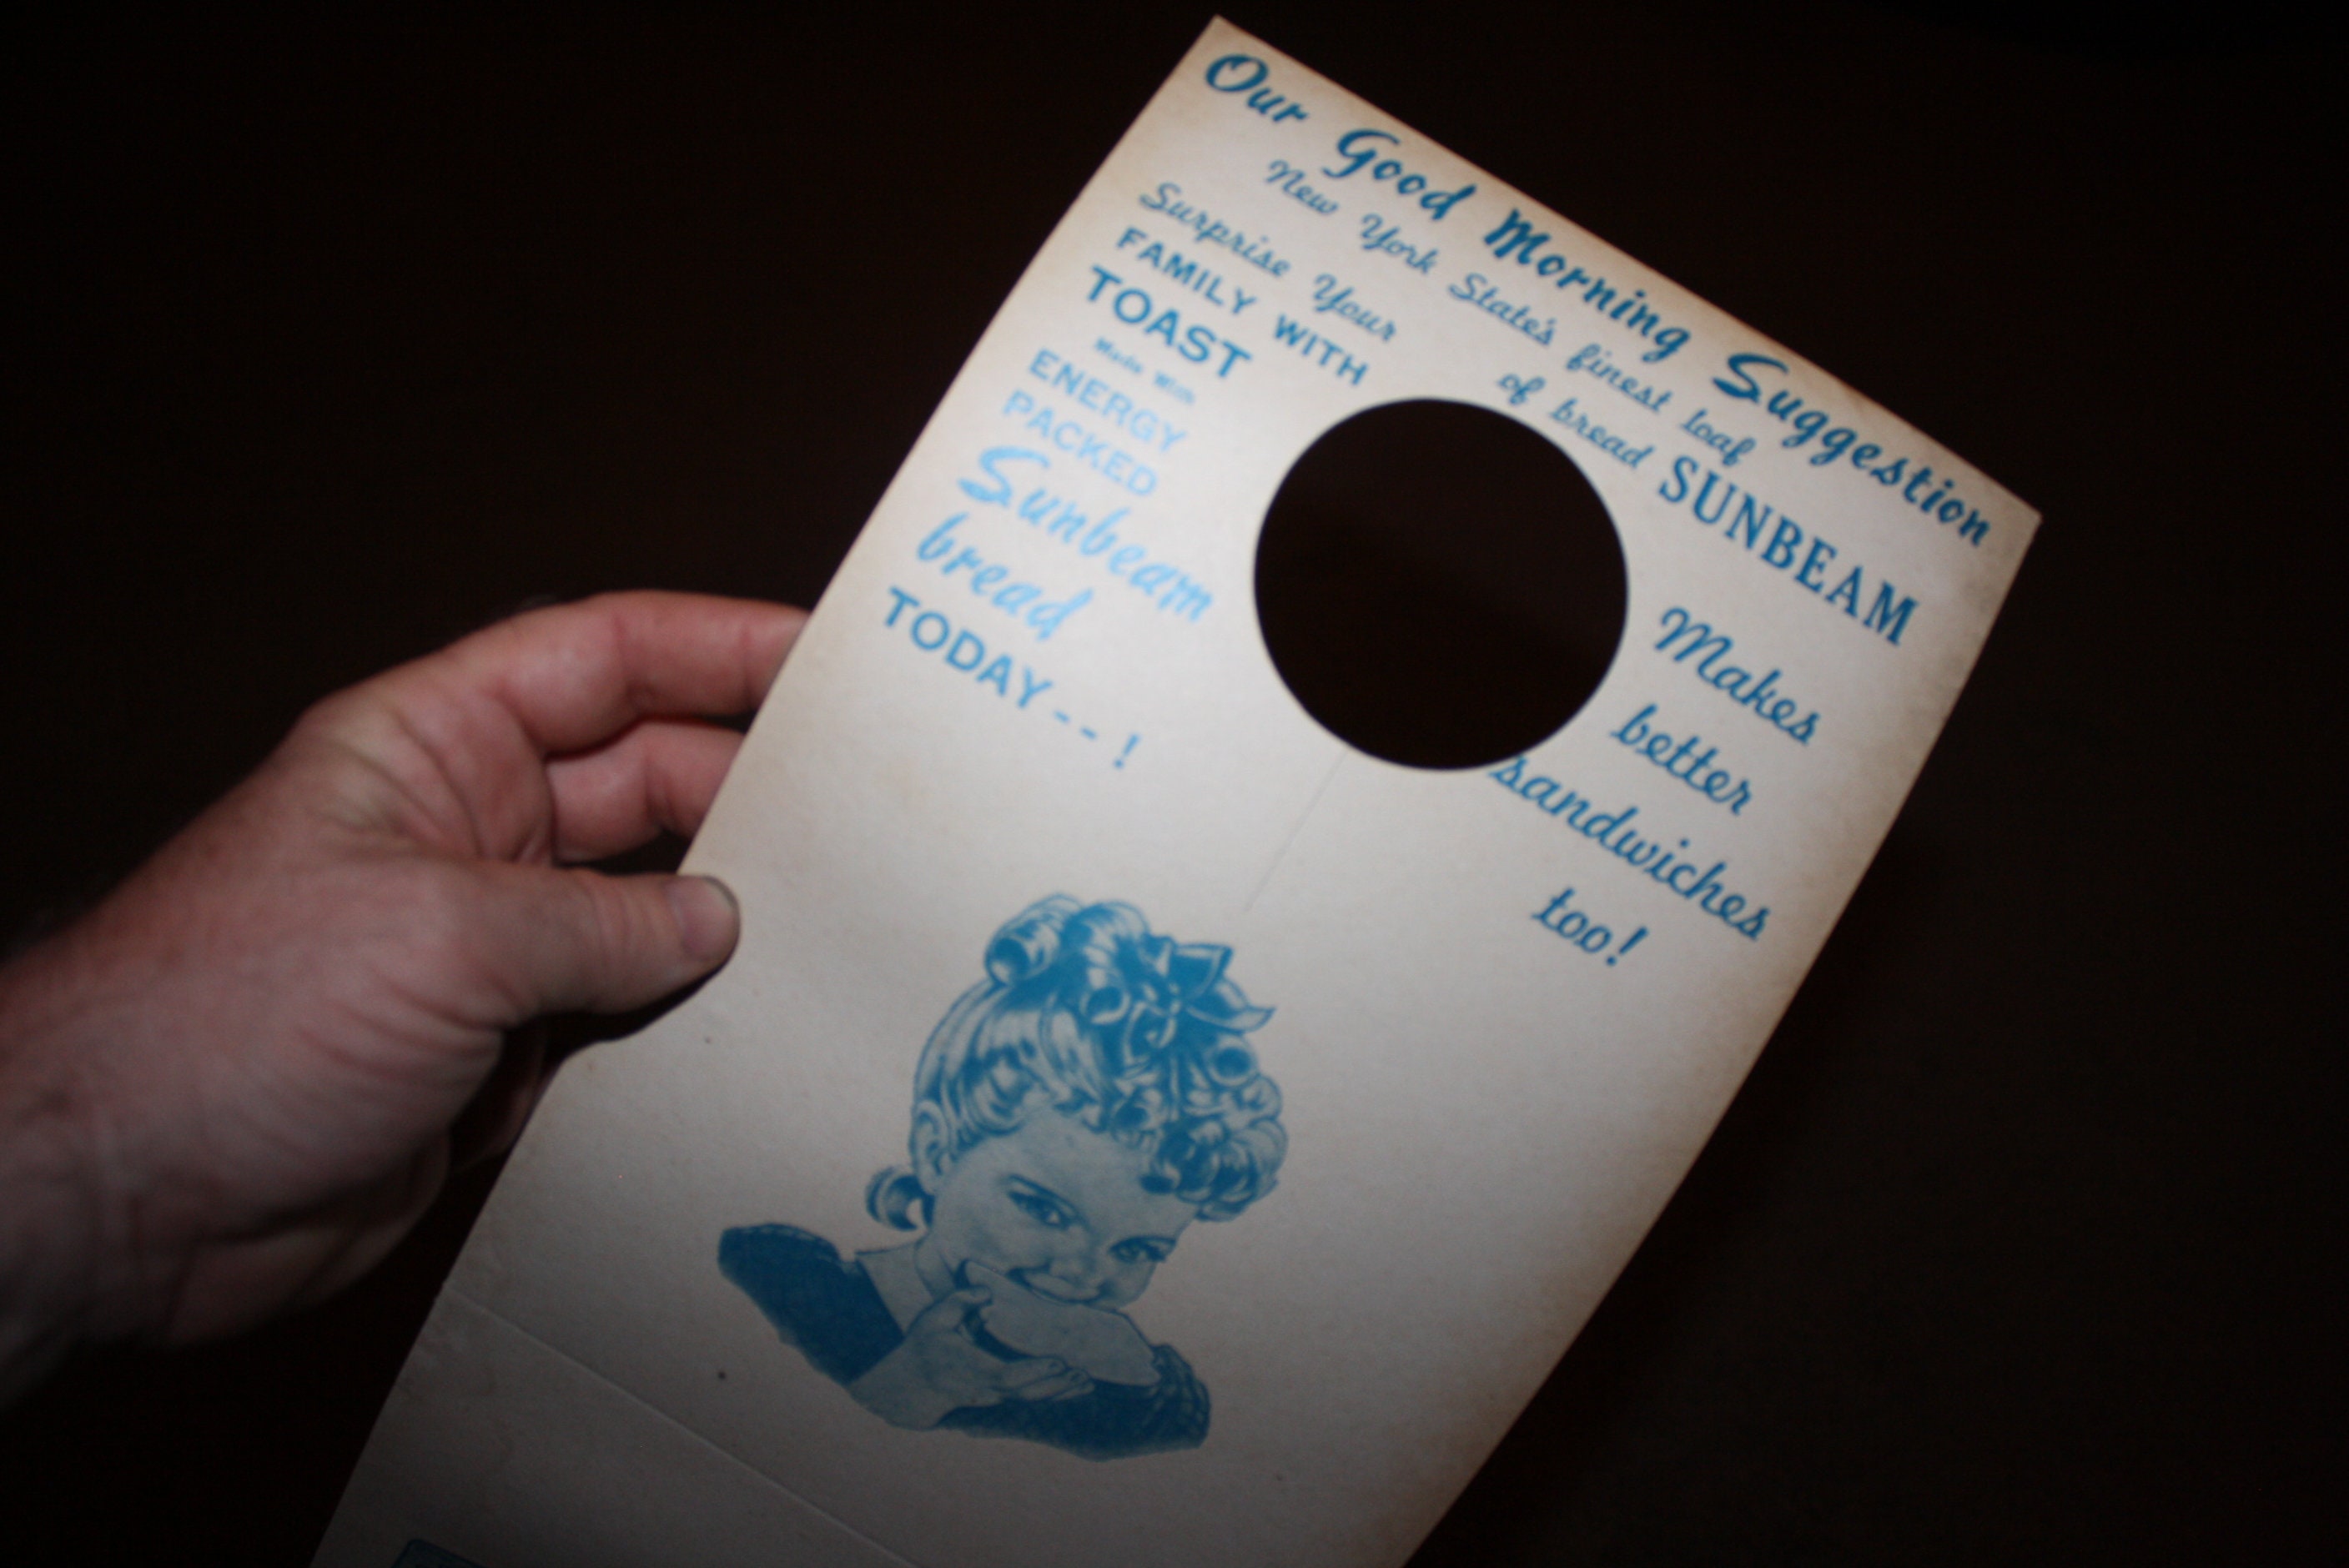 Our Good Morning Suggestion
New York State's finest loaf
of bread SUNBEAM
Surprise Your
FAMILY WITH
TOAST
Made With
ENERGY
PACKED
Sunbeam
bread
TODAY - - !
Makes
better
sandwiches
too!